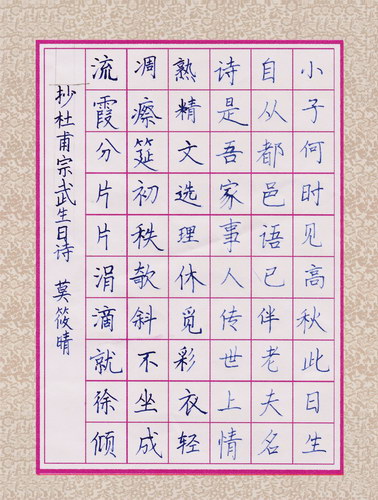 小子何时见高秋此日生
自从都邑语已伴老夫名
诗是吾家事人传世上情
熟精文选理休觅彩衣轻
凋瘵筵初秩欹斜不坐成
流霞分片片涓滴就徐倾
抄杜甫宗武生日诗 莫筱晴